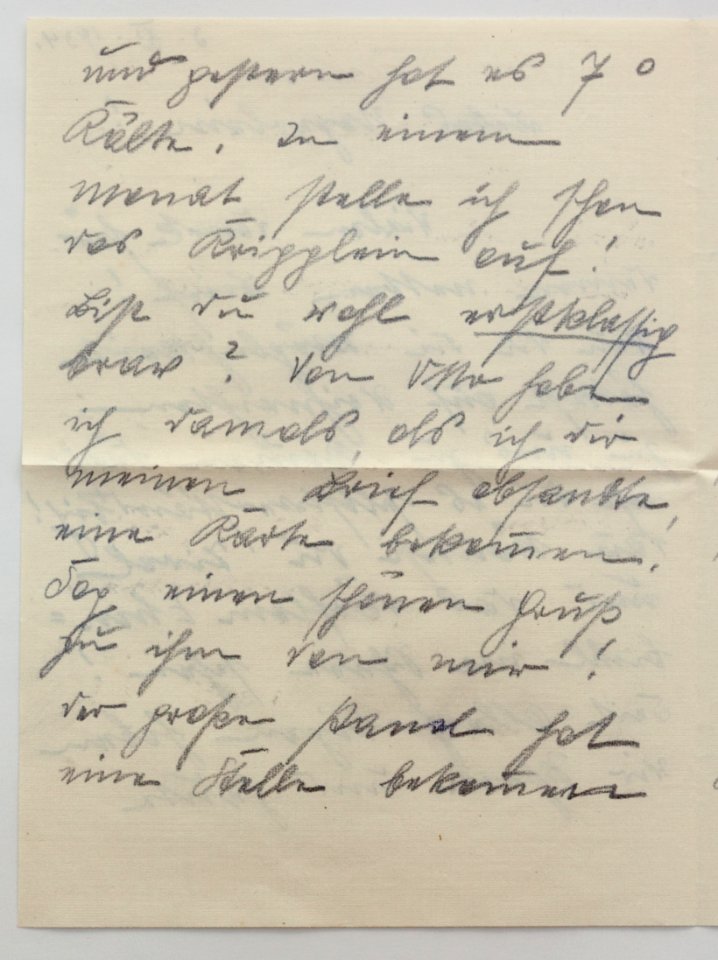 und gestern hat es 7°
Kälte. In einem
Monat stelle ich schon
das Kripplein auf!
Bist du wohl erstklassig
brav? Von Otto habe
ich damals, als ich dir
meinen Brief absandte,
eine Karte bekom̅en.
Sag einen schönen Gruß
zu ihm von mir!
der große hat
eine Stelle bekom̅en